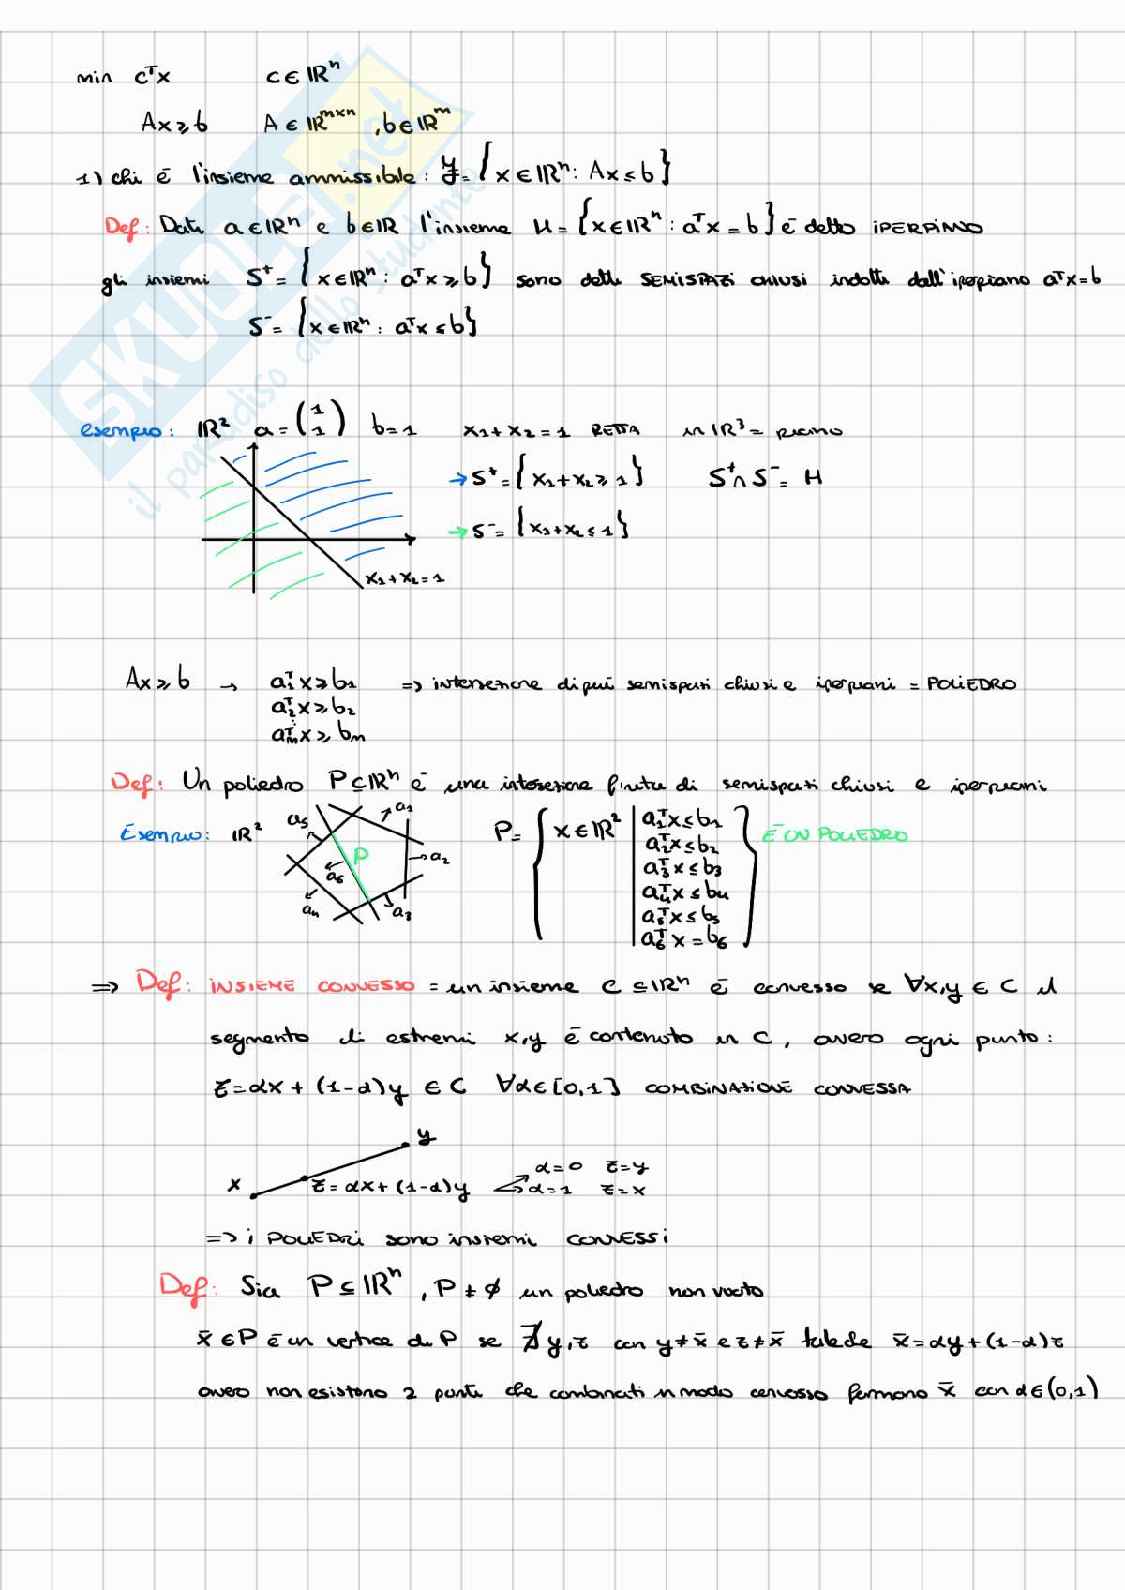 min cᵀx c∈ℝⁿ
Ax≥b A∈ℝᵐˣⁿ, b∈ℝᵐ
1) chi è l'insieme ammissibile: F={x∈ℝⁿ: Ax≤b}
Def: Dati a∈ℝⁿ e b∈ℝ l'insieme H={x∈ℝⁿ: aᵀx=b} è detto IPERPIANO
gli insiemi S⁺={x∈ℝⁿ: aᵀx≥b} sono detti SEMISPAZI CHIUSI indotti dall'iperpiano aᵀx=b
S⁻={x∈ℝⁿ: aᵀx≤b}
esempio: ℝ² a=(1 1) b=1 x₁+x₂=1 RETTA in ℝ³= PIANO
→S⁺={x₁+x₂≥1} S⁺∩S⁻=H
→S⁻={x₁+x₂≤1}
x₁+x₂=1
Ax≥b → a₁ᵀx≥b₁ => intersezione di più semispazi chiusi e iperpiani = POLIEDRO
a₂ᵀx≥b₂
⋮
aₘᵀx≥bₘ
Def: Un poliedro P⊆ℝⁿ è una intersezione finita di semispazi chiusi e iperpiani
Esempio: ℝ² a₅ a₁ P a₂ a₆ a₄ a₃
P={x∈ℝ² | a₁ᵀx≤b₁ È UN POLIEDRO
a₂ᵀx≤b₂
a₃ᵀx≤b₃
a₄ᵀx≤b₄
a₅ᵀx≤b₅
a₆ᵀx=b₆}
=> Def: INSIEME CONVESSO = un insieme C⊆ℝⁿ è convesso se ∀x,y∈C il
segmento di estremi x,y è contenuto in C, ovvero ogni punto:
z=αx+(1-α)y ∈C ∀α∈[0,1] COMBINAZIONE CONVESSA
y
x z=αx+(1-α)y α=0 z=y
α=1 z=x
=> i POLIEDRI sono insiemi CONVESSI
Def: Sia P⊆ℝⁿ, P≠∅ un poliedro non vuoto
x̄∈P è un vertice di P se ∄y,z con y≠x̄ e z≠x̄ tale che x̄=αy+(1-α)z
ovvero non esistono 2 punti che combinati in modo convesso formano x̄ con α∈(0,1)
SKUOLA.net
il paradiso dello studente